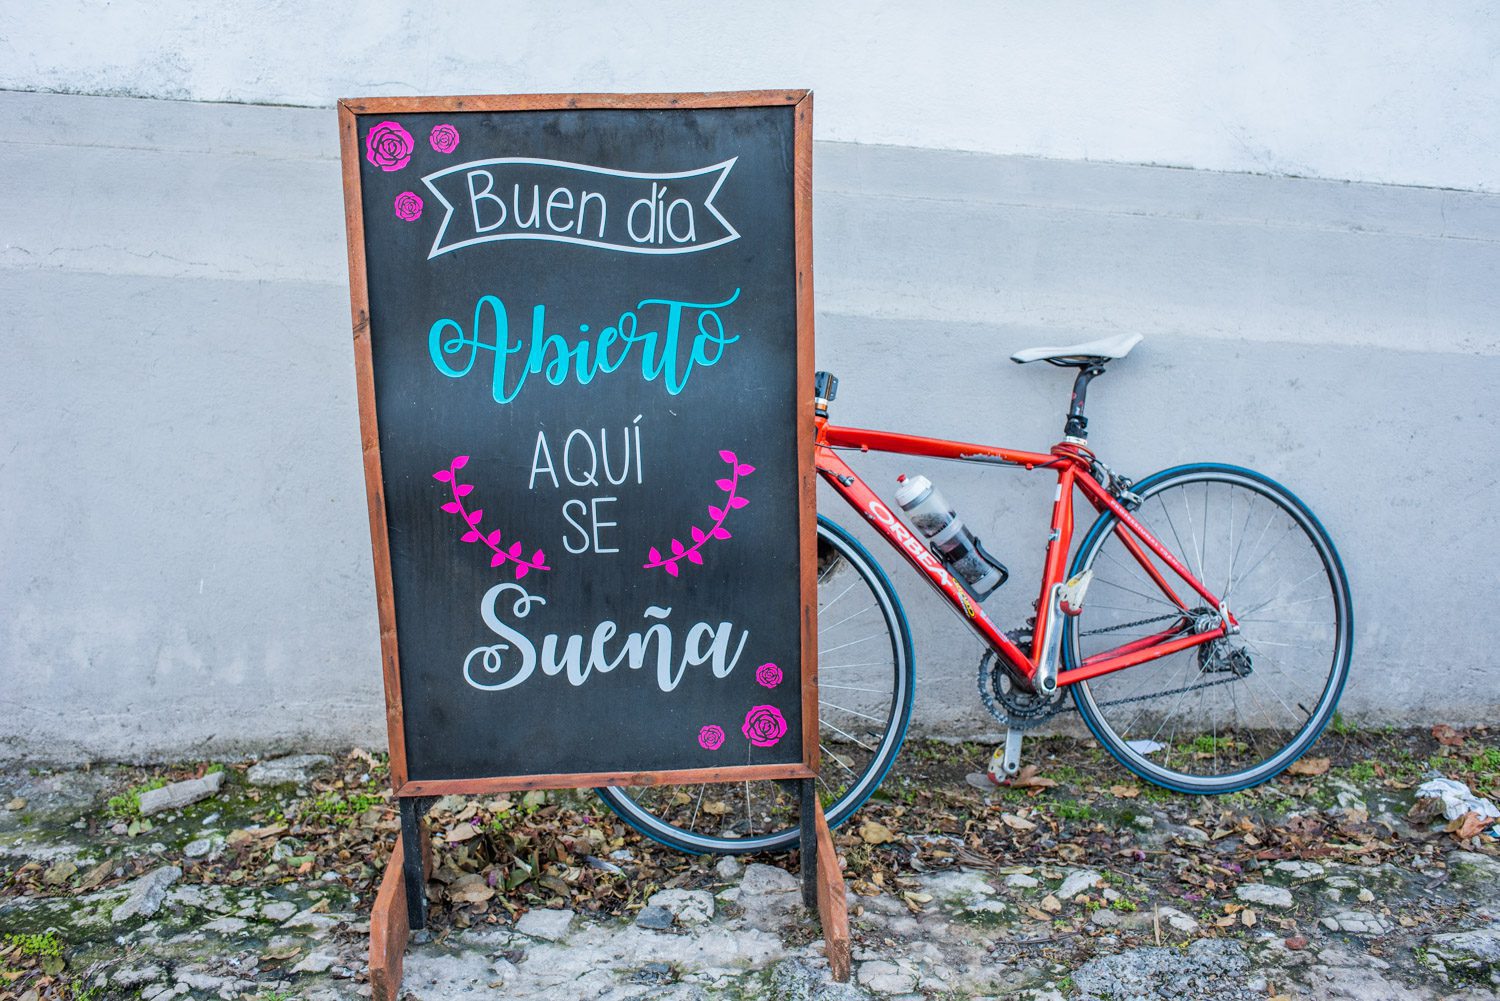 Buen día
Abierto
AQUÍ
SE
Sueña
ORBEA